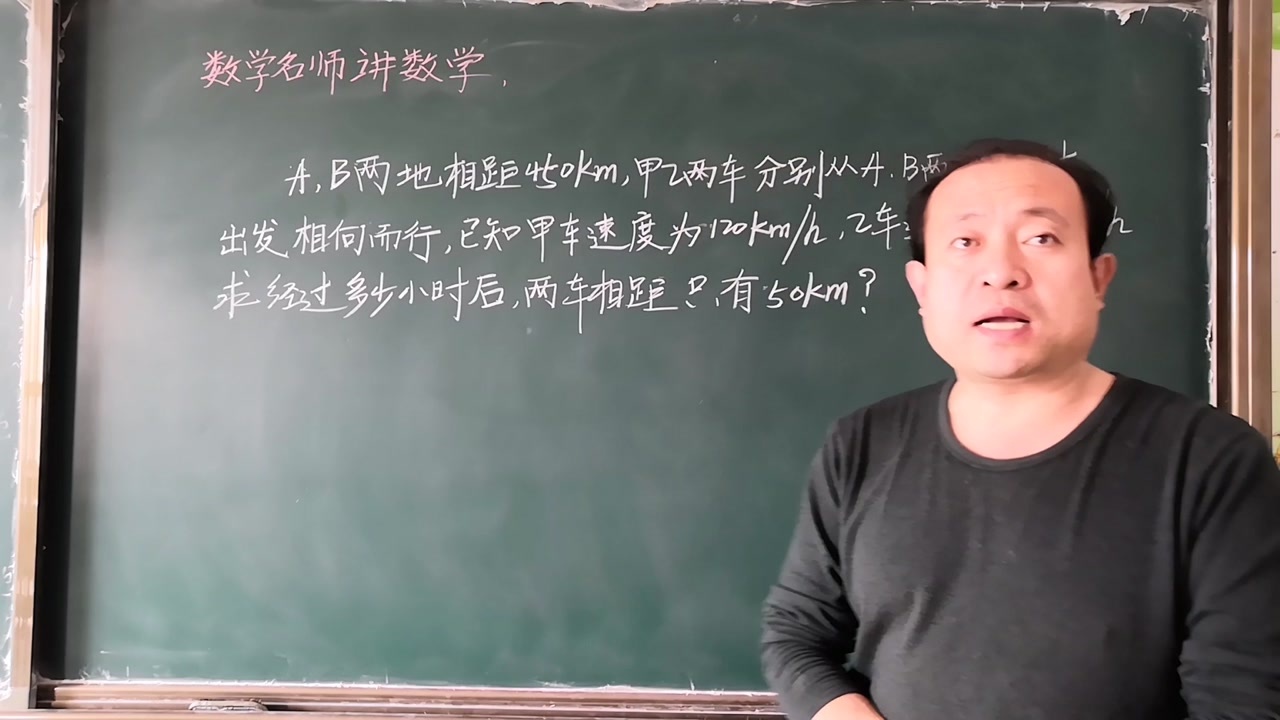 数学名师讲数学,
A,B两地相距450km,甲乙两车分别从A.B两
出发相向而行,已知甲车速度为120km/h,乙车 h
求经过多少小时后,两车相距只有50km?